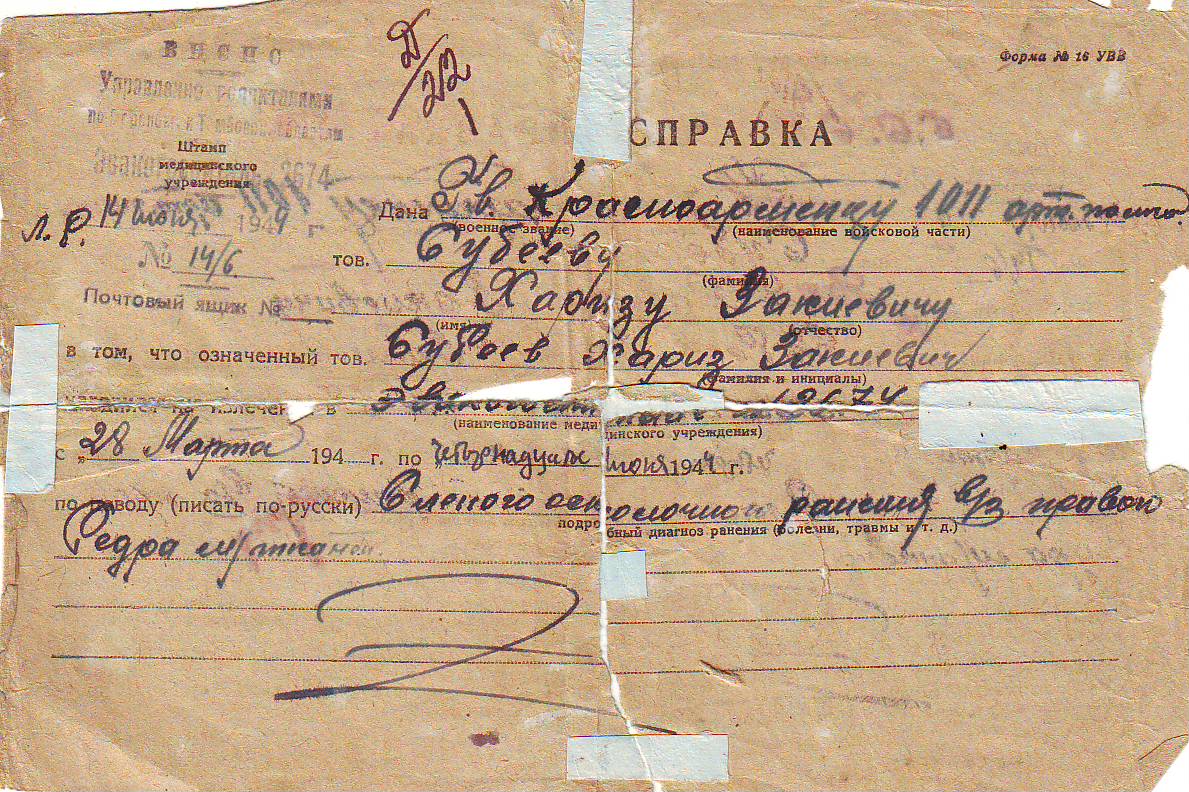 Д/212
Форма № 16 УВВ
Управление госпиталями
СПРАВКА
Штамп
медицинского
учреждения
14 июня 1944 г
Дана Гв. Красноармейцу 1011 арт. полка
(военное звание) (наименование войсковой части)
№ 14/6
тов. Субееву
(фамилия)
Почтовый ящик №
Харизу Закиевичу
(имя) (отчество)
в том, что означенный тов. Субеев Хариз Закиевич
(фамилия и инициалы)
находился на излечении в Эвакогоспитале 3674
(наименование медицинского учреждения)
с „28 Марта 194 г. по четырнадцатое июня 1944 г.
по поводу (писать по-русски) Слепого осколочного ранения в/з правого
подробный диагноз ранения (болезни, травмы и т. д.)
бедра м/тканей.